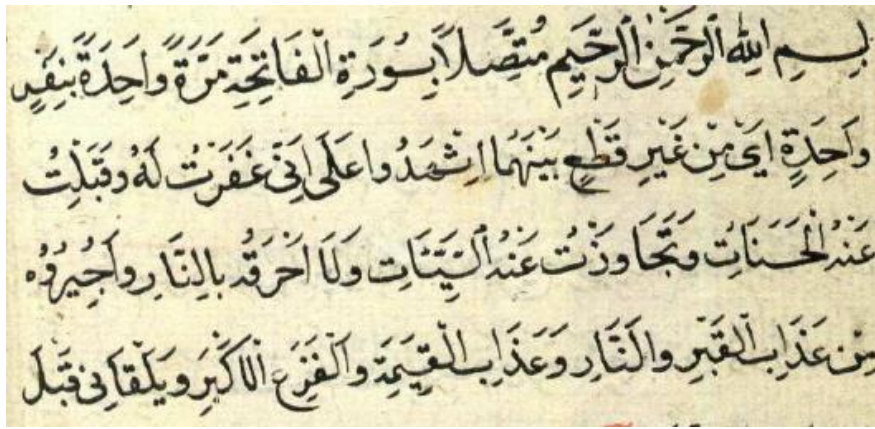 بِسْمِ اللهِ الرَّحْمٰنِ الرَّحِيمِ مُتَّصِلاً بِسُورَةِ الْفَاتِحَةِ مَرَّةً وَاحِدَةً بِنَفَسٍ
وَاحِدَةٍ اَيْ مِنْ غَيْرِ قَطْعٍ بَيْنَهُمَا اِشْهَدُوا عَلَى اَنِّى غَفَرْتُ لَهُ وَقَبِلْتُ
عَنْهُ الْحَسَنَاتِ وَتَجَاوَزْتُ عَنْهُ السَّيِّئَاتِ وَلَا اَحْرَقُهُ بِالنَّارِ وَاُجِيرُهُ
مِنْ عَذَابِ الْقَبْرِ وَالنَّارِ وَعَذَابِ الْقِيٰمَةِ وَالْفَزَعِ الْاَكْبَرِ وَيَلْقَانِى قَبْلَ